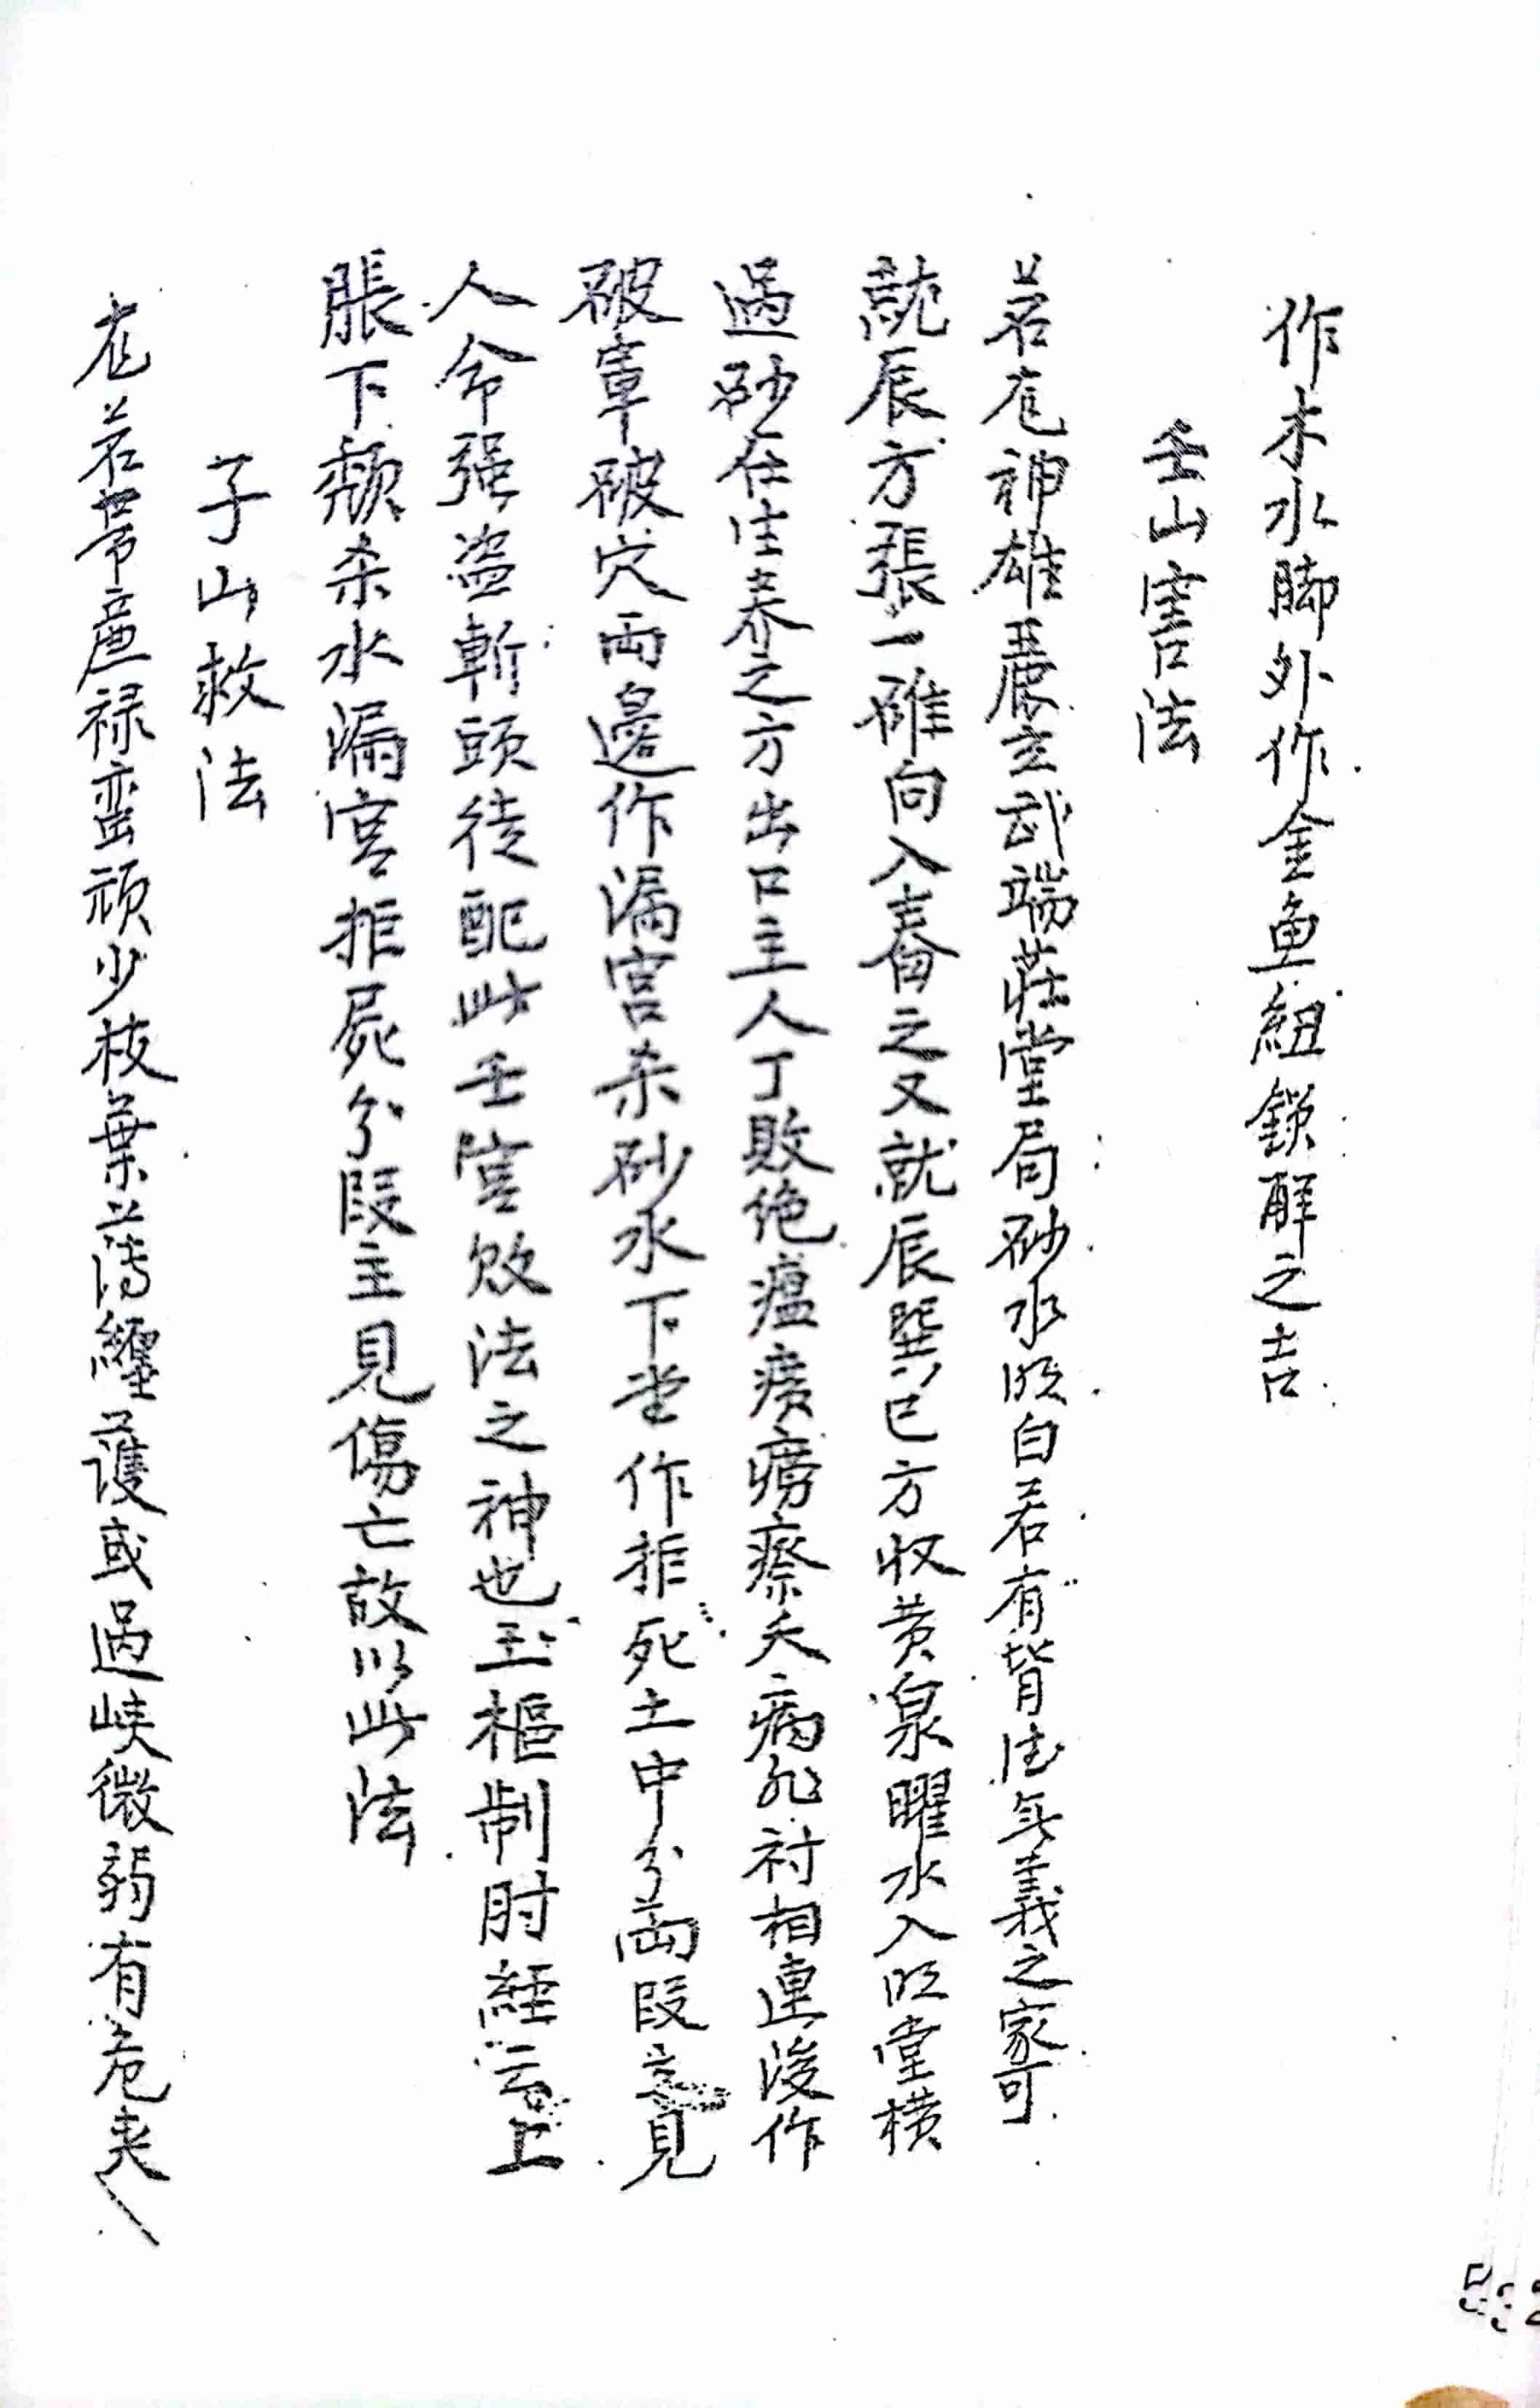 作木水脚外作金魚紐鎖解之吉
壬山害法
若龙神雄麗立武端莊堂局砂水明白若有背法無義之家可
就辰方張一碓向入舂之又就辰巽巳方収黄泉曜水入明堂横
過砂在生养之方出口主人丁敗绝瘟㾮癆瘵夭病死衬相連後作
破軍破穴両邊作漏宫杀砂水下坐作拒死土中分両段主見
人命强盗斬頭徒配此壬宫敗法之神也玉樞制肘經云上
脹下颓杀水漏宫拒屍分段主見傷亡故以此法
子山救法
龙若帯産禄蛮頑少枝葉蕩纏護或過峡微弱有危夹